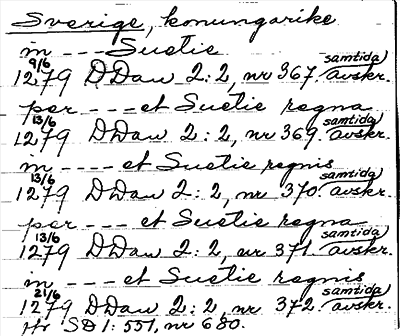 Sverige, konungarike
in - - - Suetie
9/6 samtida
1279 DDan 2:2, nr 367. avskr.
per - - - et Suetie regna
13/6 samtida
1279 DDan 2:2, nr 369. avskr.
in - - - et Suetie regnis
13/6 samtida
1279 DDan 2:2, nr 370. avskr.
per - - - et Suetie regna
13/6 samtida
1279 DDan 2:2, nr 371. avskr.
in - - - et Suetie regnis
21/6 samtida
1279 DDan 2:2, nr 372. avskr.
SD 1: 551, nr 680.